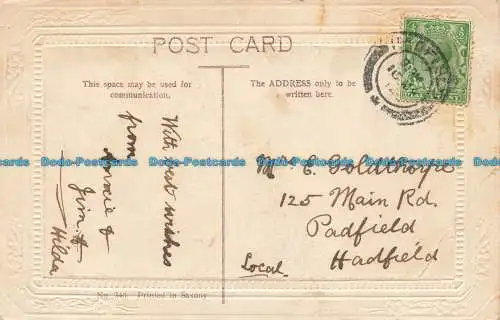 POST CARD
This space may be used for
communication.
The ADDRESS only to be
written here.
With best wishes
from
Annie &
Jim &
Hilda
E. Goldthorpe
125 Main Rd.
Padfield
Hadfield
Local
No. 340. Printed in Saxony
Dodo-Postcards Dodo-Postcards Dodo-Postcards Dodo-Postcards